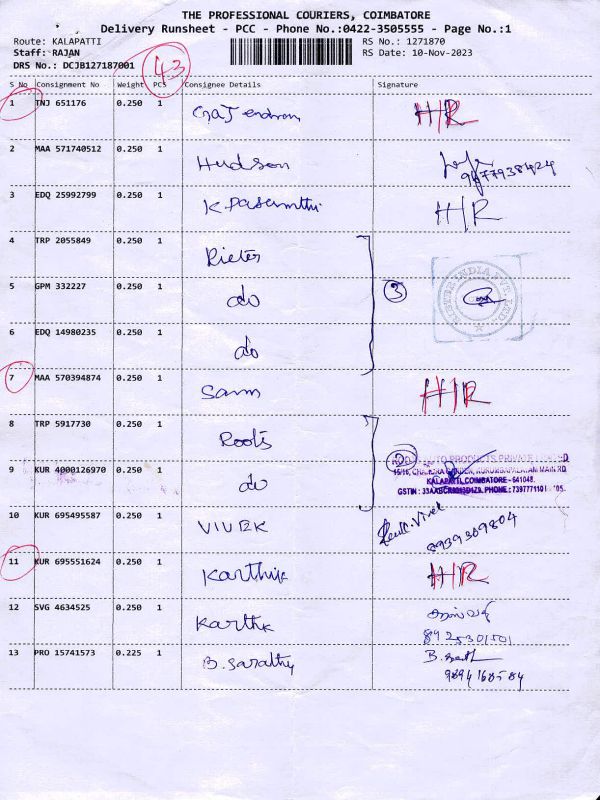 THE PROFESSIONAL COURIERS, COIMBATORE
Delivery Runsheet - PCC - Phone No.:0422-3505555 - Page No.:1
Route: KALAPATTI RS No.: 1271870
Staff: RAJAN RS Date: 10-Nov-2023
DRS No.: DCJB127187001 43
S No Consignment No Weight PCS Consignee Details Signature
1 TNJ 651176 0.250 1 Gajendran H/R
2 MAA 571740512 0.250 1 Hudson
3 EDQ 25992799 0.250 1 K. Pasamthi H/R
4 TRP 2055849 0.250 1 Rieter
5 GPM 332227 0.250 1 do 3
6 EDQ 14980235 0.250 1 do
7 MAA 570394874 0.250 1 Sam H/R
8 TRP 5917730 0.250 1 Roots
2 AUTO PRODUCTS PRIVATE LIMITED
9 KUR 4000126970 0.250 1 do
KALAPATTI, COIMBATORE - 641048.
10 KUR 695495587 0.250 1 VIVEK Vivek
8939309804
11 KUR 695551624 0.250 1 Karthik H/R
12 SVG 4634525 0.250 1 Karthk
8925301501
13 PRO 15741573 0.225 1 B. Sarathy B.
9894168584